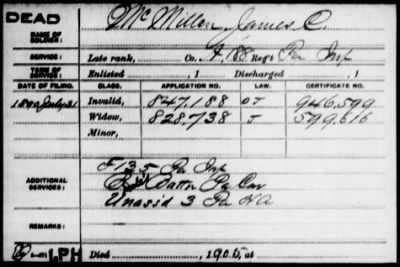 DEAD
McMillen, James C.
NAME OF SOLDIER:
SERVICE: Late rank, Co. A, 188 Reg't Pa Inf
TERM OF SERVICE: Enlisted , 1 Discharged , 1
DATE OF FILING. CLASS. APPLICATION NO. LAW. CERTIFICATE NO.
1890 July 31. Invalid, 847.188 J 946.599
Widow, 828.738 J 599,616
Minor,
ADDITIONAL SERVICES: F 135 Pa Inf
Batn Pa Cav
Unasid 3 Pa HA
REMARKS:
LPH Died , 1905, at